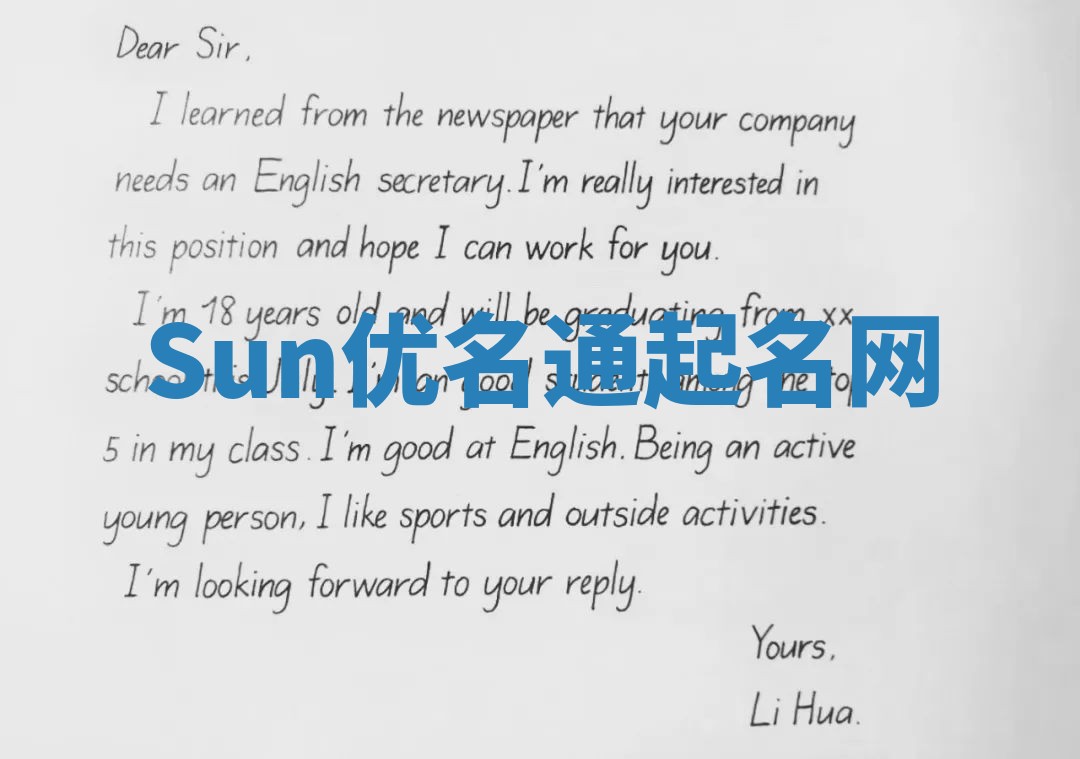 Dear Sir,
I learned from the newspaper that your company
needs an English secretary. I'm really interested in
this position and hope I can work for you.
I'm 18 years old and will be graduating from xx
Sun优名通起名网
school this July. I'm an good student among the top
5 in my class. I'm good at English. Being an active
young person, I like sports and outside activities.
I'm looking forward to your reply.
Yours,
Li Hua.